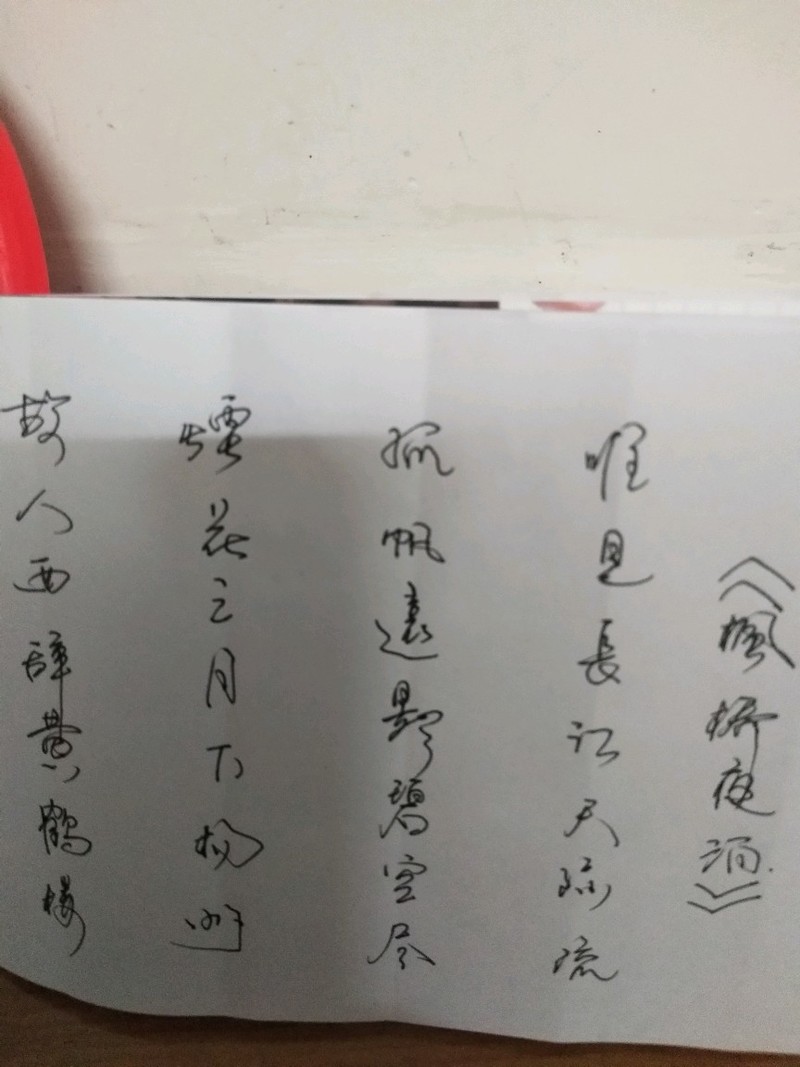 故人西辞黄鹤楼
煙花三月下扬州
孤帆遠影碧空尽
唯見長江天际流
《楓橋夜泊》